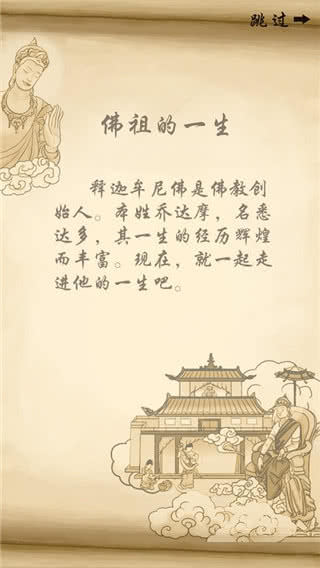 跳过
佛祖的一生
释迦牟尼佛是佛教创
始人。本姓乔达摩，名悉
达多，其一生的经历辉煌
而丰富。现在，就一起走
进他的一生吧。